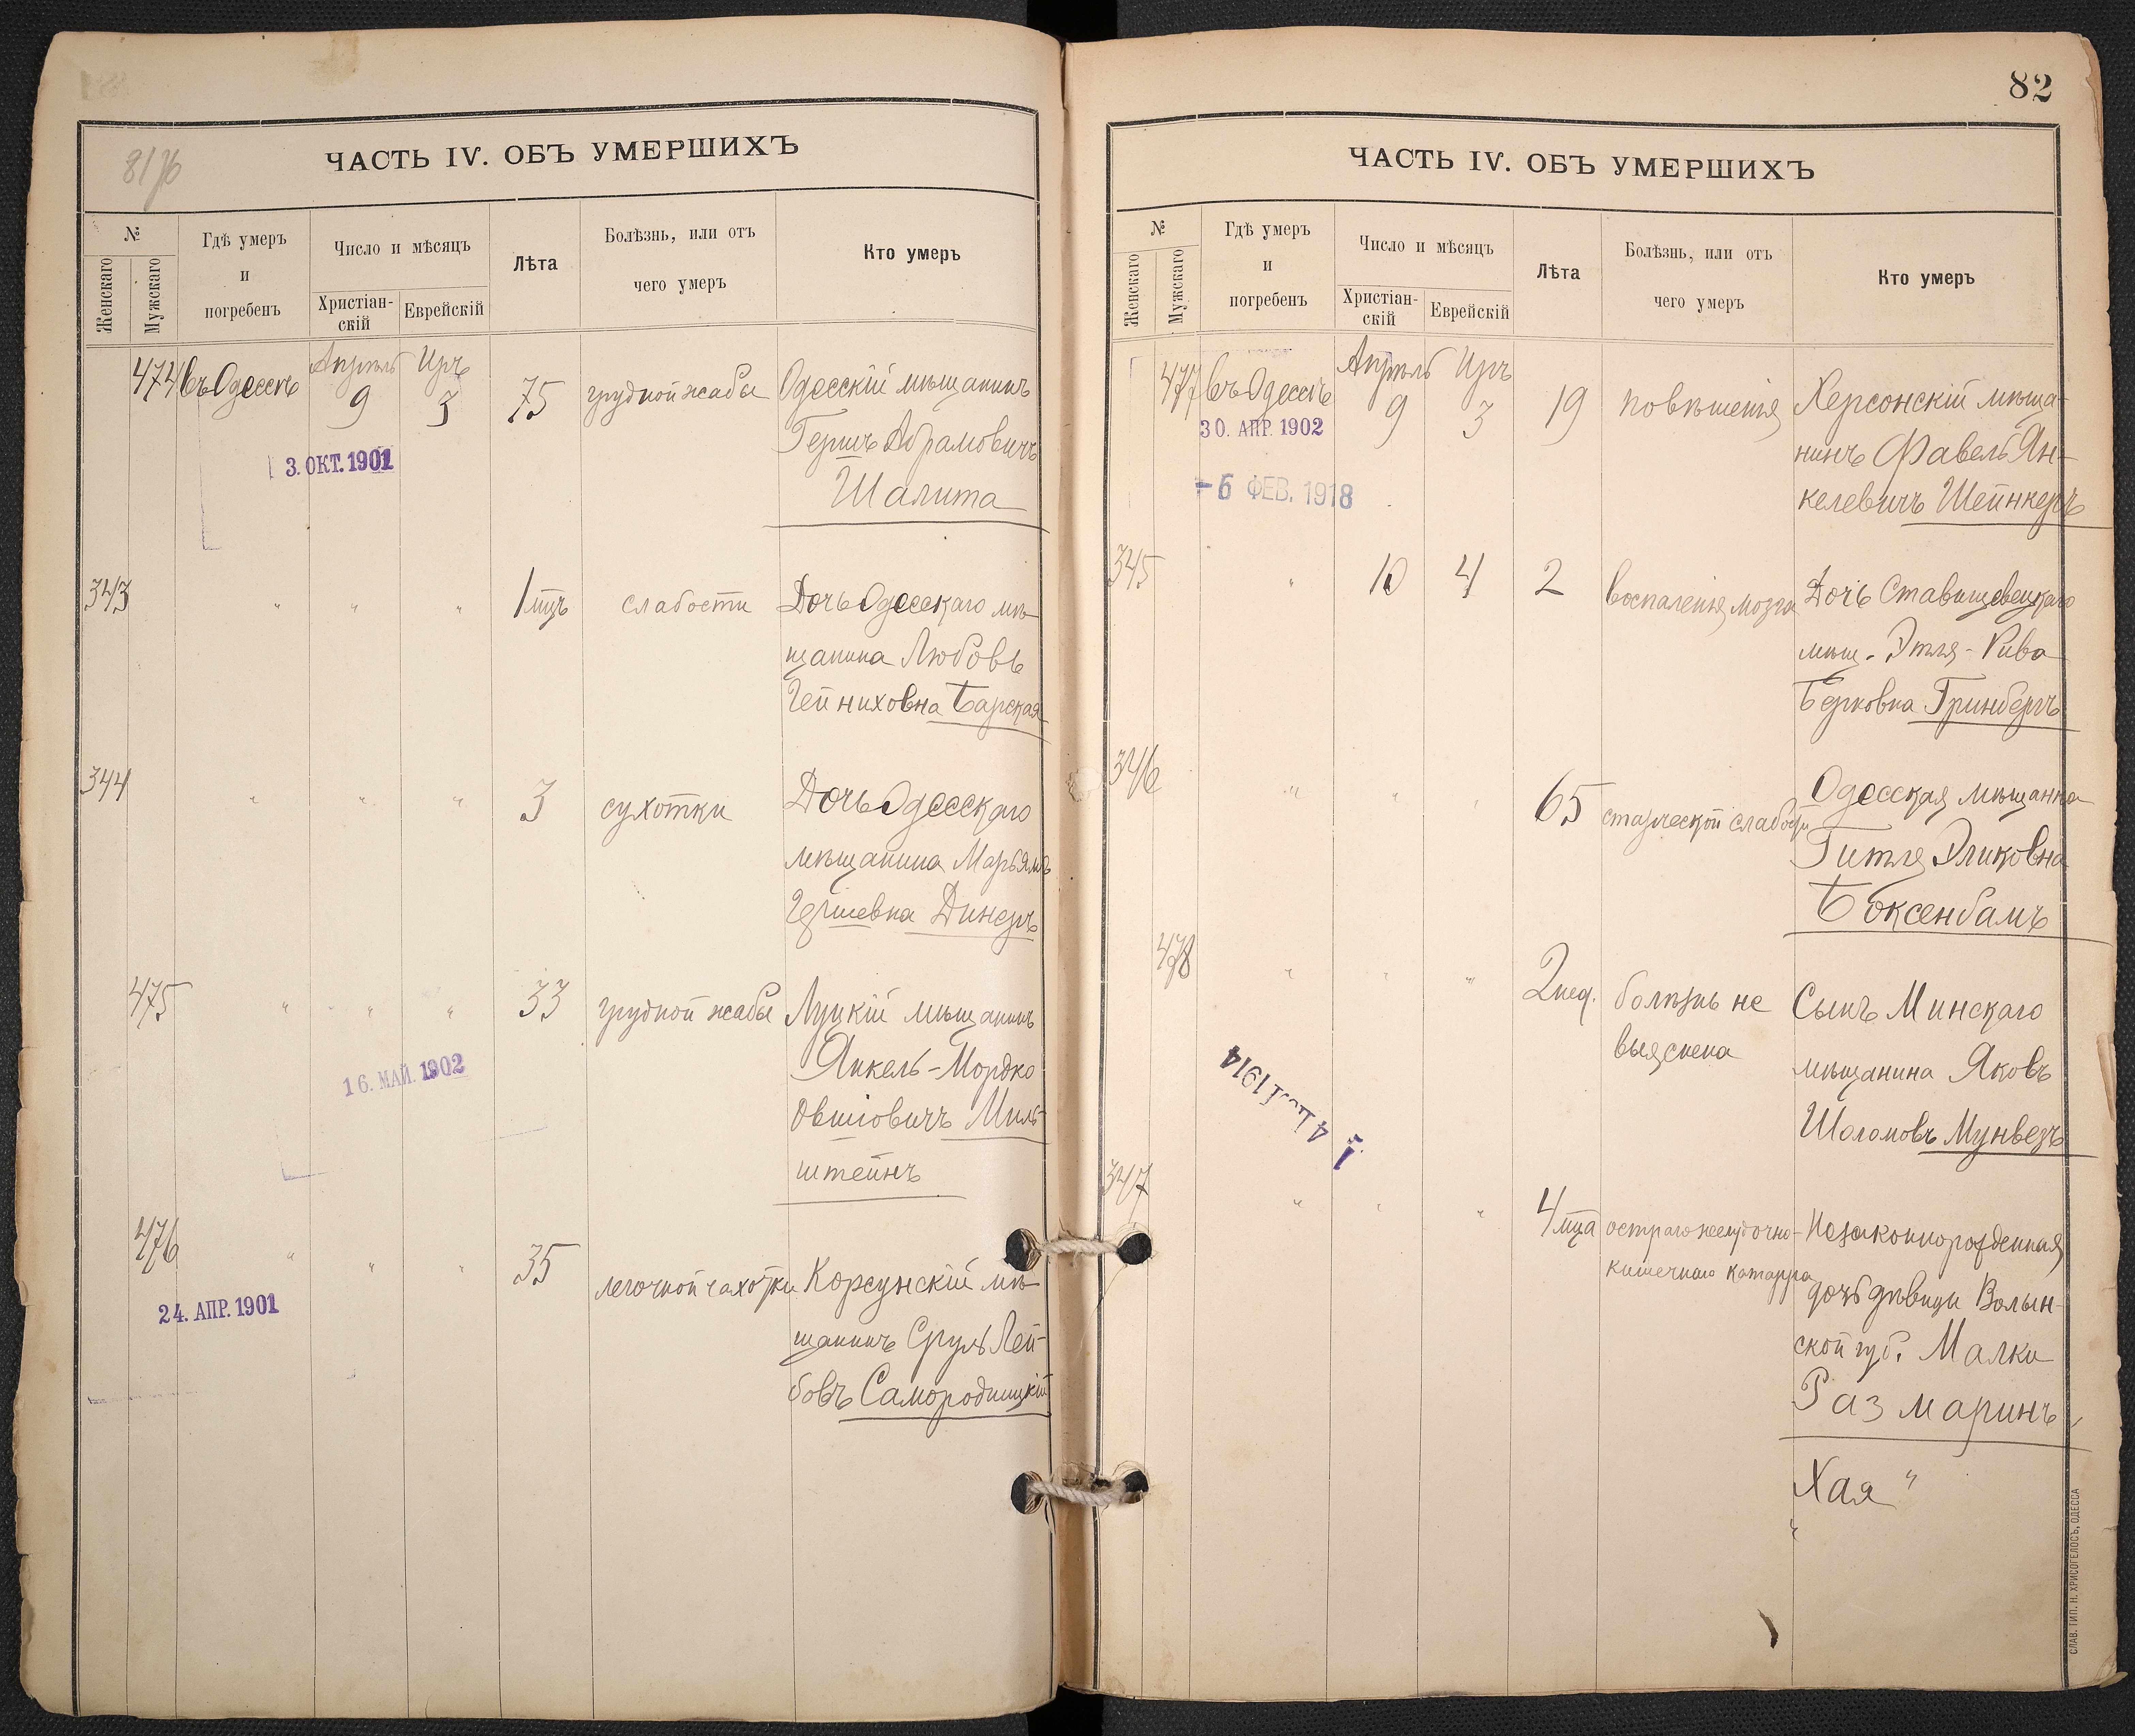 8176
ЧАСТЬ IV. ОБЪ УМЕРШИХЪ
№
Женскаго
Мужскаго
Гдѣ умеръ
и
погребенъ
Число и мѣсяцъ
Христіан-
скій
Еврейскій
Лѣта
Болѣзнь, или отъ
чего умеръ
Кто умеръ
474 въ Одессѣ Апрѣль 9 Иръ 3 75 грудной жабы Одесскій мѣщанинъ
Гершъ Абрамовичъ
Шалита
3. ОКТ. 1901
343 " " " 1 мцъ слабости Дочь Одесскаго мѣ-
щанина Любовь
Гейниховна Барская
344 " " " 3 сухотки Дочь Одесскаго
мѣщанина Марьямъ
Гершевна Динеръ
475 " " " 33 грудной жабы Луцкій мѣщанинъ
Янкель-Мордко
Овшіовичъ Миль-
штейнъ
16. МАЙ. 1902
476 " " " 35 легочной чахотки Корсунскій мѣ-
щанинъ Сруль Лей-
бовъ Самородницкій
24. АПР. 1901
82
ЧАСТЬ IV. ОБЪ УМЕРШИХЪ
№
Женскаго
Мужскаго
Гдѣ умеръ
и
погребенъ
Число и мѣсяцъ
Христіан-
скій
Еврейскій
Лѣта
Болѣзнь, или отъ
чего умеръ
Кто умеръ
477 въ Одессѣ Апрѣль 9 Иръ 3 19 повѣшенія Херсонскій мѣща-
нинъ Фавель Ян-
келевичъ Шейнкеръ
30. АПР. 1902
-6 ФЕВ. 1918
345 " 10 4 2 воспаленія мозга Дочь Ставищевецкаго
мѣщ. Этля-Рива
Берковна Гринбергъ
346 " " " 65 старческой слабости Одесская мѣщанка
Гитля Эликовна
Боксенбамъ
478 " " " 2 нед. болѣзнь не
выяснена
Сынъ Минскаго
мѣщанина Яковъ
Шоломовъ Мунвезъ
1914
347 " " " 4 мца остраго желудочно-
кишечнаго катарра
Незаконнорожденная
дочь дѣвицы Волын-
ской губ. Малки
Размаринъ,
Хая "
СЛАВ. ТИП. Н. ХРИСОГЕЛОСЪ, ОДЕССА